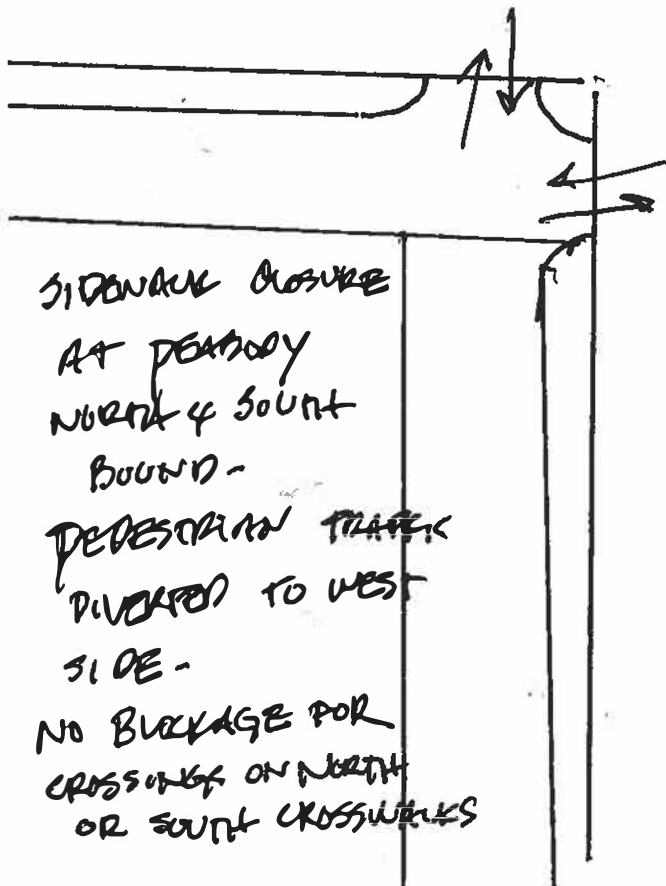 SIDEWALK CLOSURE
AT PEABODY
NORTH & SOUTH
BOUND-
PEDESTRIAN TRAFFIC
DIVERTED TO WEST
SIDE-
NO BLOCKAGE FOR
CROSSINGS ON NORTH
OR SOUTH CROSSWALKS